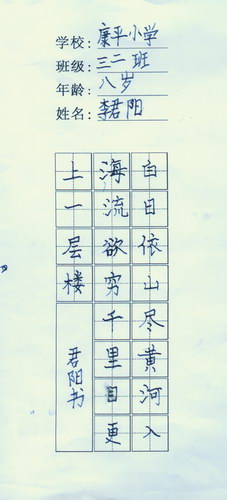 学校：康平小学
班级：三二班
年龄：八岁
姓名：李君阳
白日依山尽黄河入
海流欲穷千里目更
上一层楼
君阳书